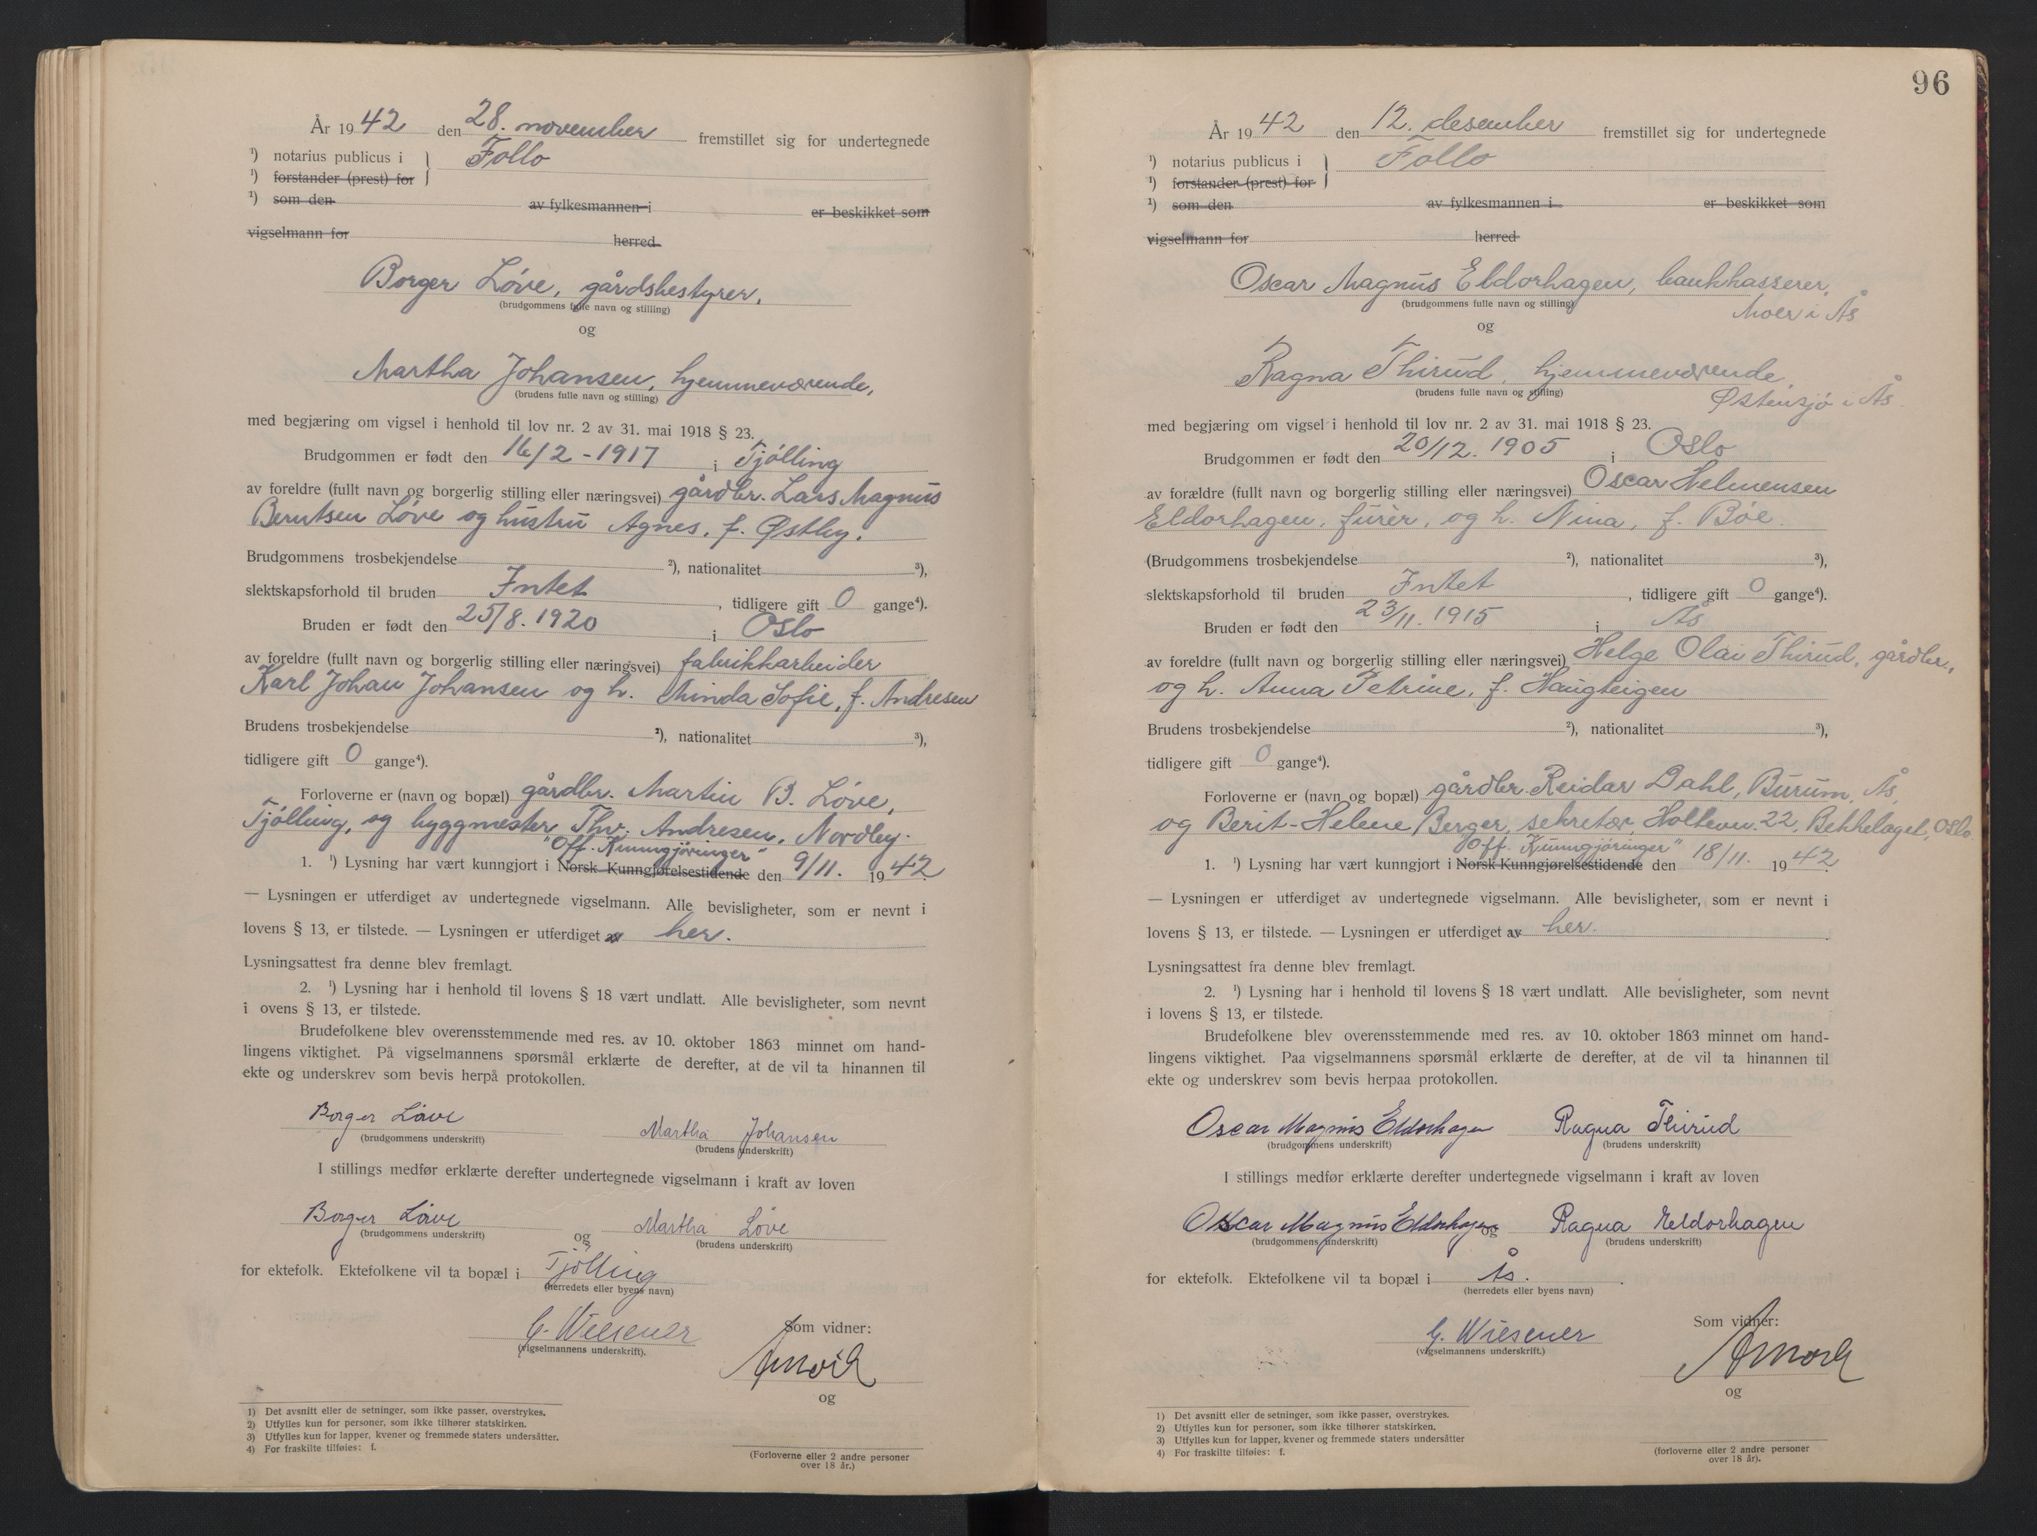 År 1942 den 28. november fremstillet sig for undertegnede
¹) notarius publicus i } Follo
¹) forstander (prest) for
¹) som den av fylkesmannen i er beskikket som
vigselmann for herred
Borger Löve, gårdsbestyrer,
(brudgommens fulle navn og stilling)
og
Martha Johansen, hjemmeværende,
(brudens fulle navn og stilling)
med begjæring om vigsel i henhold til lov nr. 2 av 31. mai 1918 § 23.
Brudgommen er født den 16/2 - 1917 i Tjölling
av foreldre (fullt navn og borgerlig stilling eller næringsvei) gårdbr. Lars Magnus
Berntsen Löve og hustru Agnes, f. Østby.
Brudgommens trosbekjendelse ²), nationalitet ³),
slektskapsforhold til bruden Intet, tidligere gift 0 gange⁴).
Bruden er født den 25/8. 1920 i Oslo
av foreldre (fullt navn og borgerlig stilling eller næringsvei) fabrikkarbeider
Karl Johan Johansen og h. Minda Sofie, f. Andresen
Brudens trosbekjendelse ²), nationalitet ³),
tidligere gift 0 gange⁴).
Forloverne er (navn og bopæl) gårdbr. Martin B. Löve,
Tjölling, og byggmester Thv. Andresen, Nordby.
"Off. Kunngjöringer"
1. ¹) Lysning har vært kunngjort i Norsk Kunngjørelsestidende den 9/11. 1942.
— Lysningen er utferdiget av undertegnede vigselmann. Alle bevisligheter, som er nevnt i
lovens § 13, er tilstede. — Lysningen er utferdiget av her.
Lysningsattest fra denne blev fremlagt.
2. ¹) Lysning har i henhold til lovens § 18 vært undlatt. Alle bevisligheter, som nevnt
i ovens § 13, er tilstede.
Brudefolkene blev overensstemmende med res. av 10. oktober 1863 minnet om hand-
lingens viktighet. På vigselmannens spørsmål erklærte de derefter, at de vil ta hinannen til
ekte og underskrev som bevis herpå protokollen.
Borger Löve Martha Johansen
(brudgommens underskrift) (brudens underskrift)
I stillings medfør erklærte derefter undertegnede vigselmann i kraft av loven
Borger Löve og Martha Löve
(brudgommens underskrift) (brudens underskrift)
for ektefolk. Ektefolkene vil ta bopæl i Tjölling
(herredets eller byens navn)
G. Wiesener Som vidner:
(vigselmannens underskrift).
og
1) Det avsnitt eller de setninger, som ikke passer, overstrykes.
2) Utfylles kun for personer, som ikke tilhører statskirken.
3) Utfylles kun for lapper, kvener og fremmede staters undersåtter.
4) For fraskilte tilføies: f.
(Forloverne eller 2 andre personer
over 18 år.)
96
År 1942 den 12. desember fremstillet sig for undertegnede
¹) notarius publicus i } Follo
¹) forstander (prest) for
¹) som den av fylkesmannen i er beskikket som
vigselmann for herred
Oscar Magnus Eldorhagen, bankkasserer,
(brudgommens fulle navn og stilling) Moer i Ås
og
Ragna Thirud, hjemmeværende,
(brudens fulle navn og stilling) Østensjö i Ås.
med begjæring om vigsel i henhold til lov nr. 2 av 31. mai 1918 § 23.
Brudgommen er født den 20/12. 1905 i Oslo
av forældre (fullt navn og borgerlig stilling eller næringsvei) Oscar Helmensen
Eldorhagen, furèr, og h. Nina, f. Böe.
(Brudgommens trosbekjendelse ²), nationalitet ³),
slektskapsforhold til bruden Intet, tidligere gift 0 gange⁴).
Bruden er født den 23/11. 1915 i Ås
av foreldre (fullt navn og borgerlig stilling eller næringsvei) Helge Olai Thirud, gårdbr.,
og h. Anna Petrine, f. Haugteigen
Brudens trosbekjendelse ²), nationalitet ³),
tidligere gift 0 gange⁴).
Forloverne er (navn og bopæl) gårdbr. Reidar Dahl, Burum, Ås,
og Berit-Helene Berger, sekretær, Holtevn. 22, Bekkelaget, Oslo
"Off. Kunngjöringer"
1. ¹) Lysning har vært kunngjort i Norsk Kunngjørelsestidende den 18/11. 1942.
— Lysningen er utferdiget av undertegnede vigselmann. Alle bevisligheter, som er nevnt i
lovens § 13, er tilstede. — Lysningen er utferdiget av her.
Lysningsattest fra denne blev fremlagt.
2. ¹) Lysning har i henhold til lovens § 18 vært undlatt. Alle bevisligheter, som nevnt
i lovens § 13, er tilstede.
Brudefolkene blev overensstemmende med res. av 10. oktober 1863 minnet om hand-
lingens viktighet. Paa vigselmannens spørsmål erklærte de derefter, at de vil ta hinannen til
ekte og underskrev som bevis herpaa protokollen.
Oscar Magnus Eldorhagen Ragna Thirud
(brudgommens underskrift) (brudens underskrift)
I stillings medfør erklærte derefter undertegnede vigselmann i kraft av loven
Oscar Magnus Eldorhagen og Ragna Eldorhagen
(brudgommens underskrift) (brudens underskrift)
for ektefolk. Ektefolkene vil ta bopæl i Ås.
(herredets eller byens navn)
G. Wiesener Som vidner:
(vigselmannens underskrift.)
og
1) Det avsnitt eller de setninger, som ikke passer, overstrykes.
2) Utfylles kun for personer, som ikke tilhører statskirken.
3) Utfylles kun for lapper, kvener og fremmede staters undersåtter
4) For fraskilte tilføies: f.
(forloverne eller 2 andre personer
over 18 år).